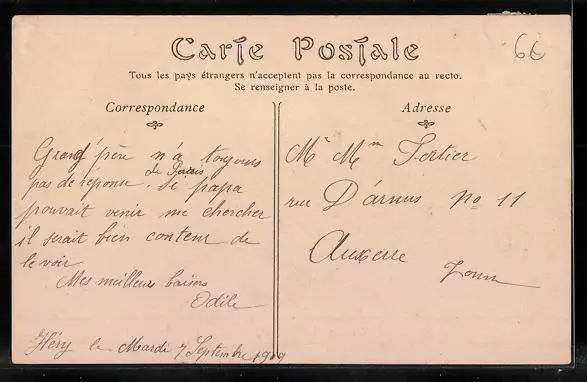 6
Carte Postale
Tous les pays étrangers n'acceptent pas la correspondance au recto.
Se renseigner à la poste.
Correspondance
Grand'père n'a toujours
de Paris
pas de réponse. Si papa
pouvait venir me chercher
il serait bien content de
le voir
Mes meilleurs baisers
Odile
Héry le Mardi 7 Septembre 1909
Adresse
Mr Mme Tertier
rue D'arnus No 11
Auxerre
Yonne